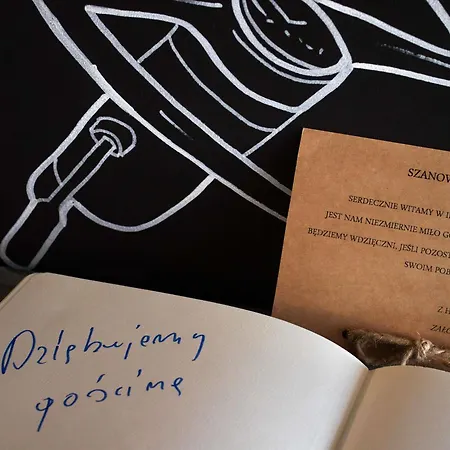 SZANOW
SERDECZNIE WITAMY W
JEST NAM NIEZMIERNIE MIŁO G
BĘDZIEMY WDZIĘCZNI, JEŚLI POZOST
SWOIM POB
Z
ZAŁO
Dziękujemy
gościnę